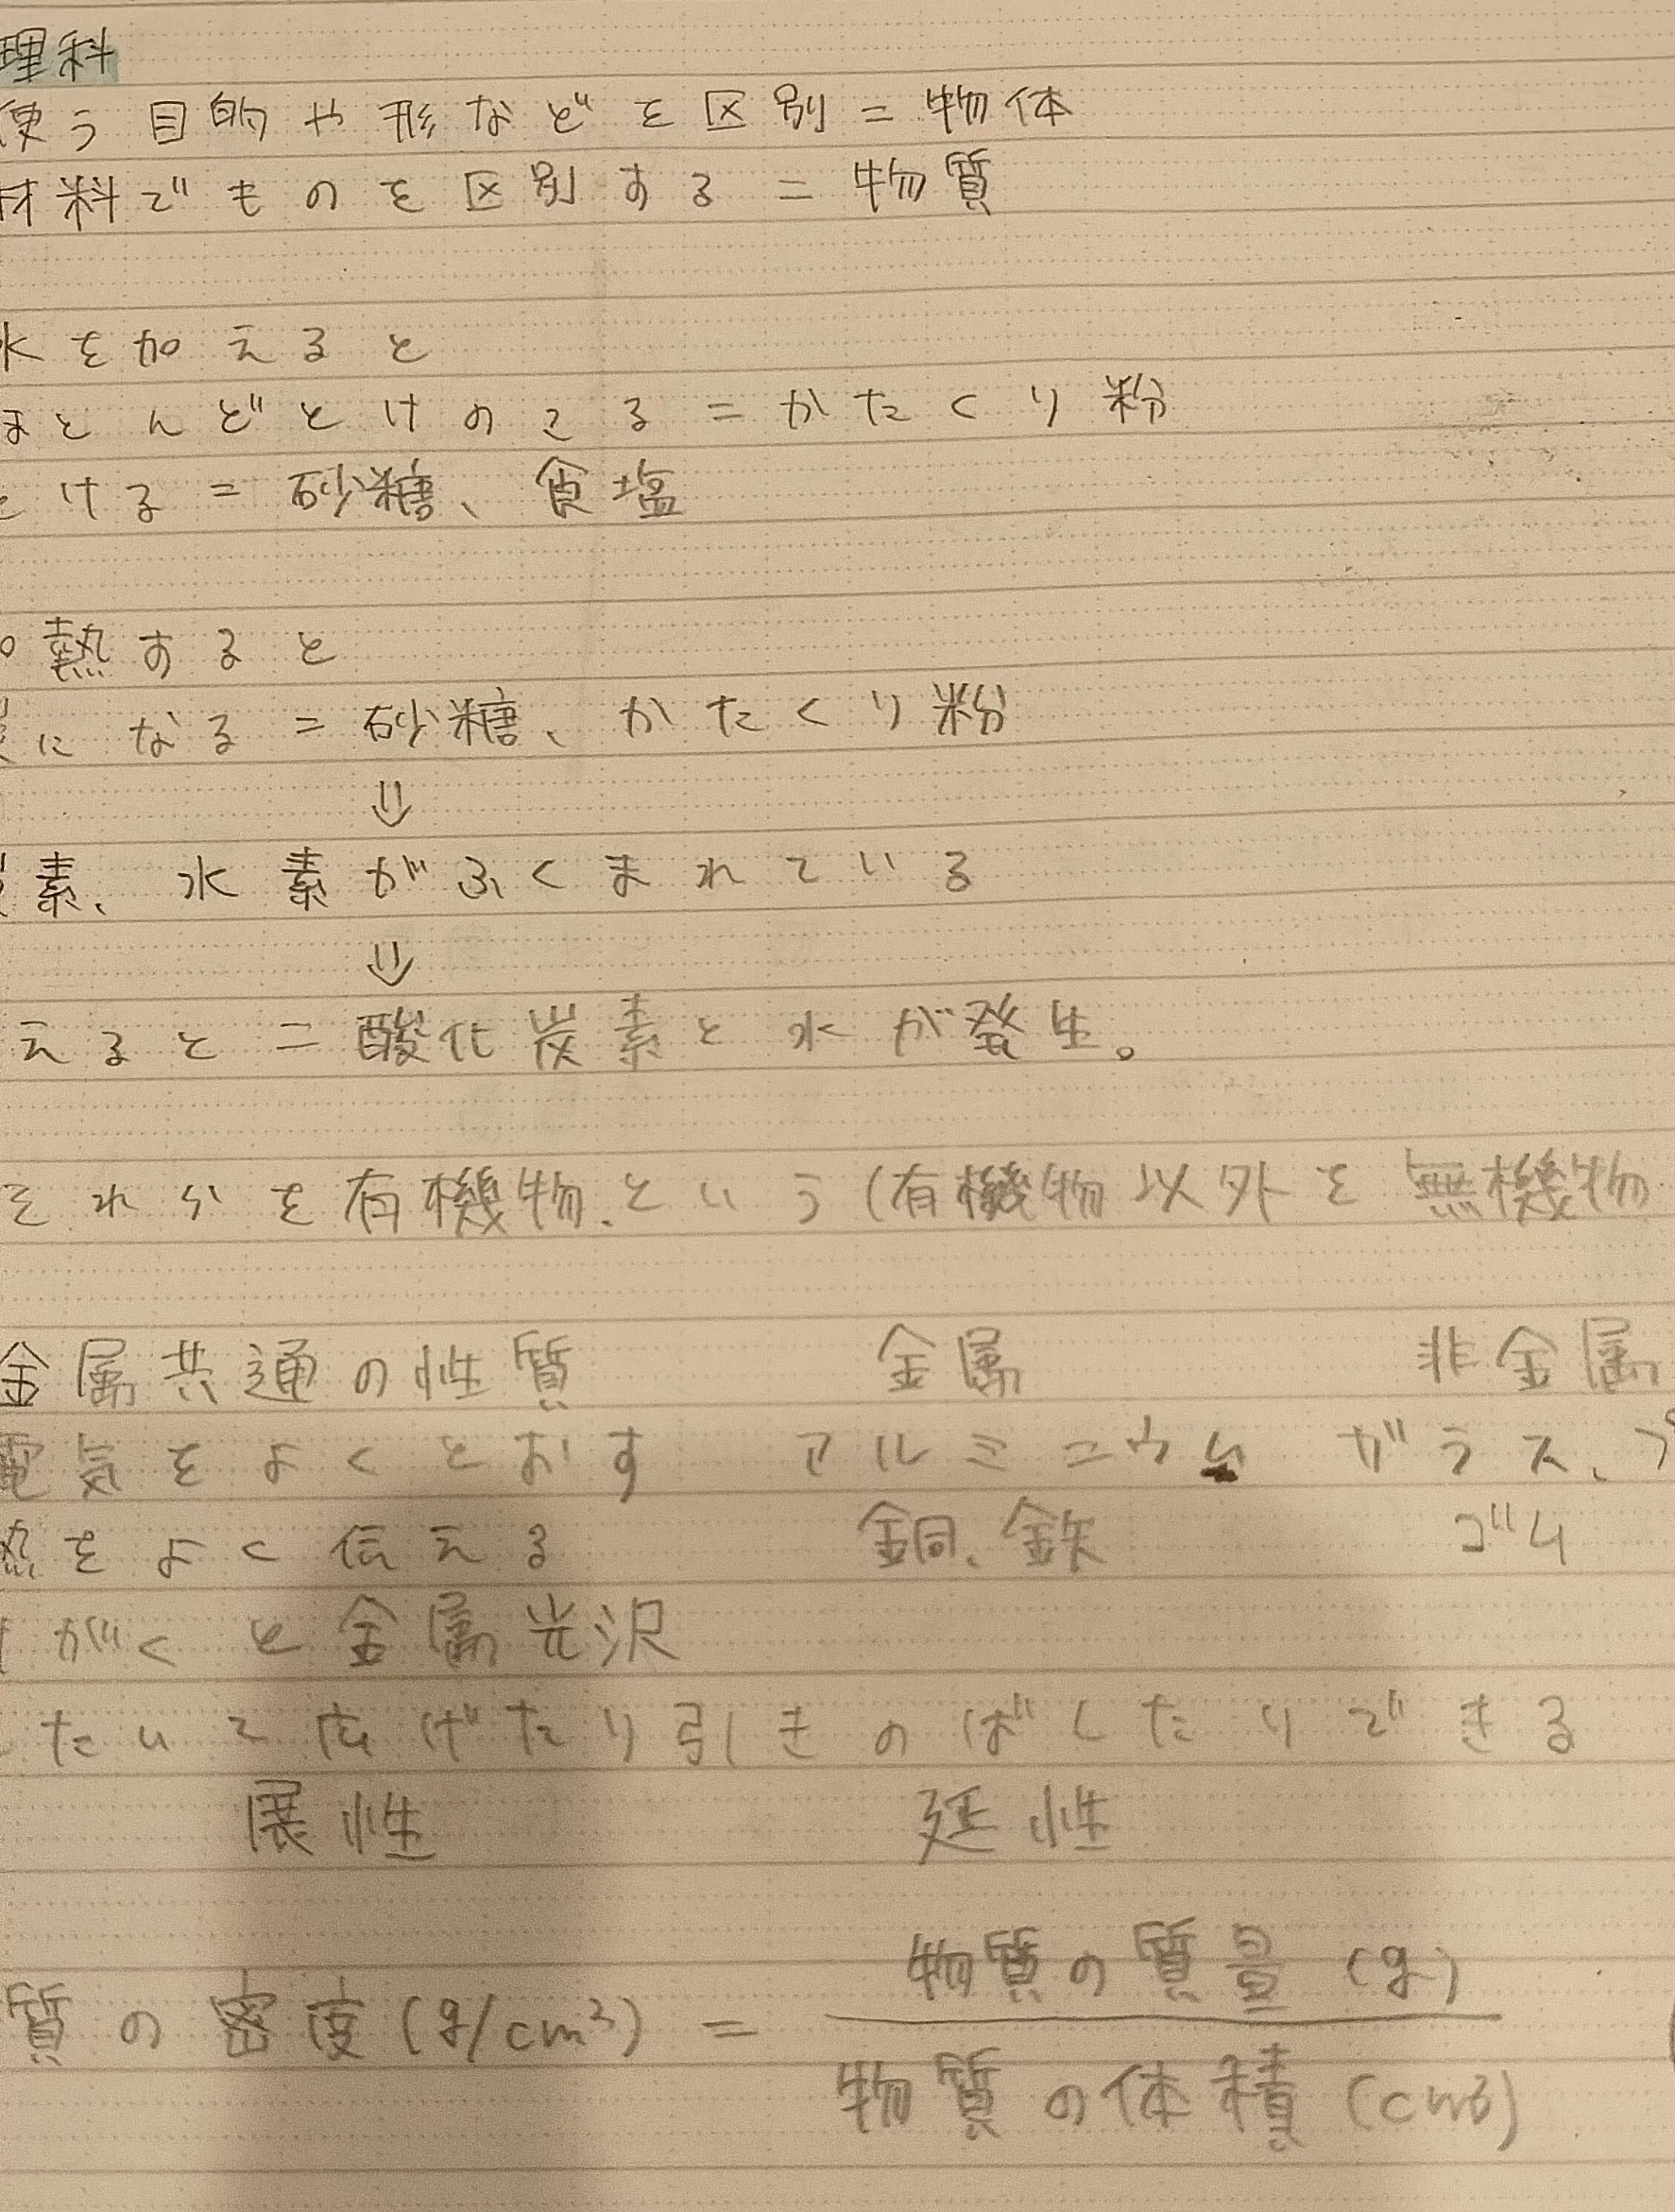 理科
使う目的や形などを区別=物体
材料でものを区別する=物質
水を加えると
ほとんどとけのこる=かたくり粉
とける=砂糖、食塩
熱すると
になる=砂糖、かたくり粉
⇓
素、水素がふくまれている
⇓
えると=酸化炭素と水が発生。
それらを有機物という(有機物以外を無機物
金属共通の性質 金属 非金属
電気をよくとおす アルミニウム ガラス、プ
熱をよく伝える 銅、鉄 ゴム
がくと金属光沢
たいて広げたり引きのばしたりできる
展性 延性
質の密度(g/cm³) = 物質の質量(g)
物質の体積(cm³)